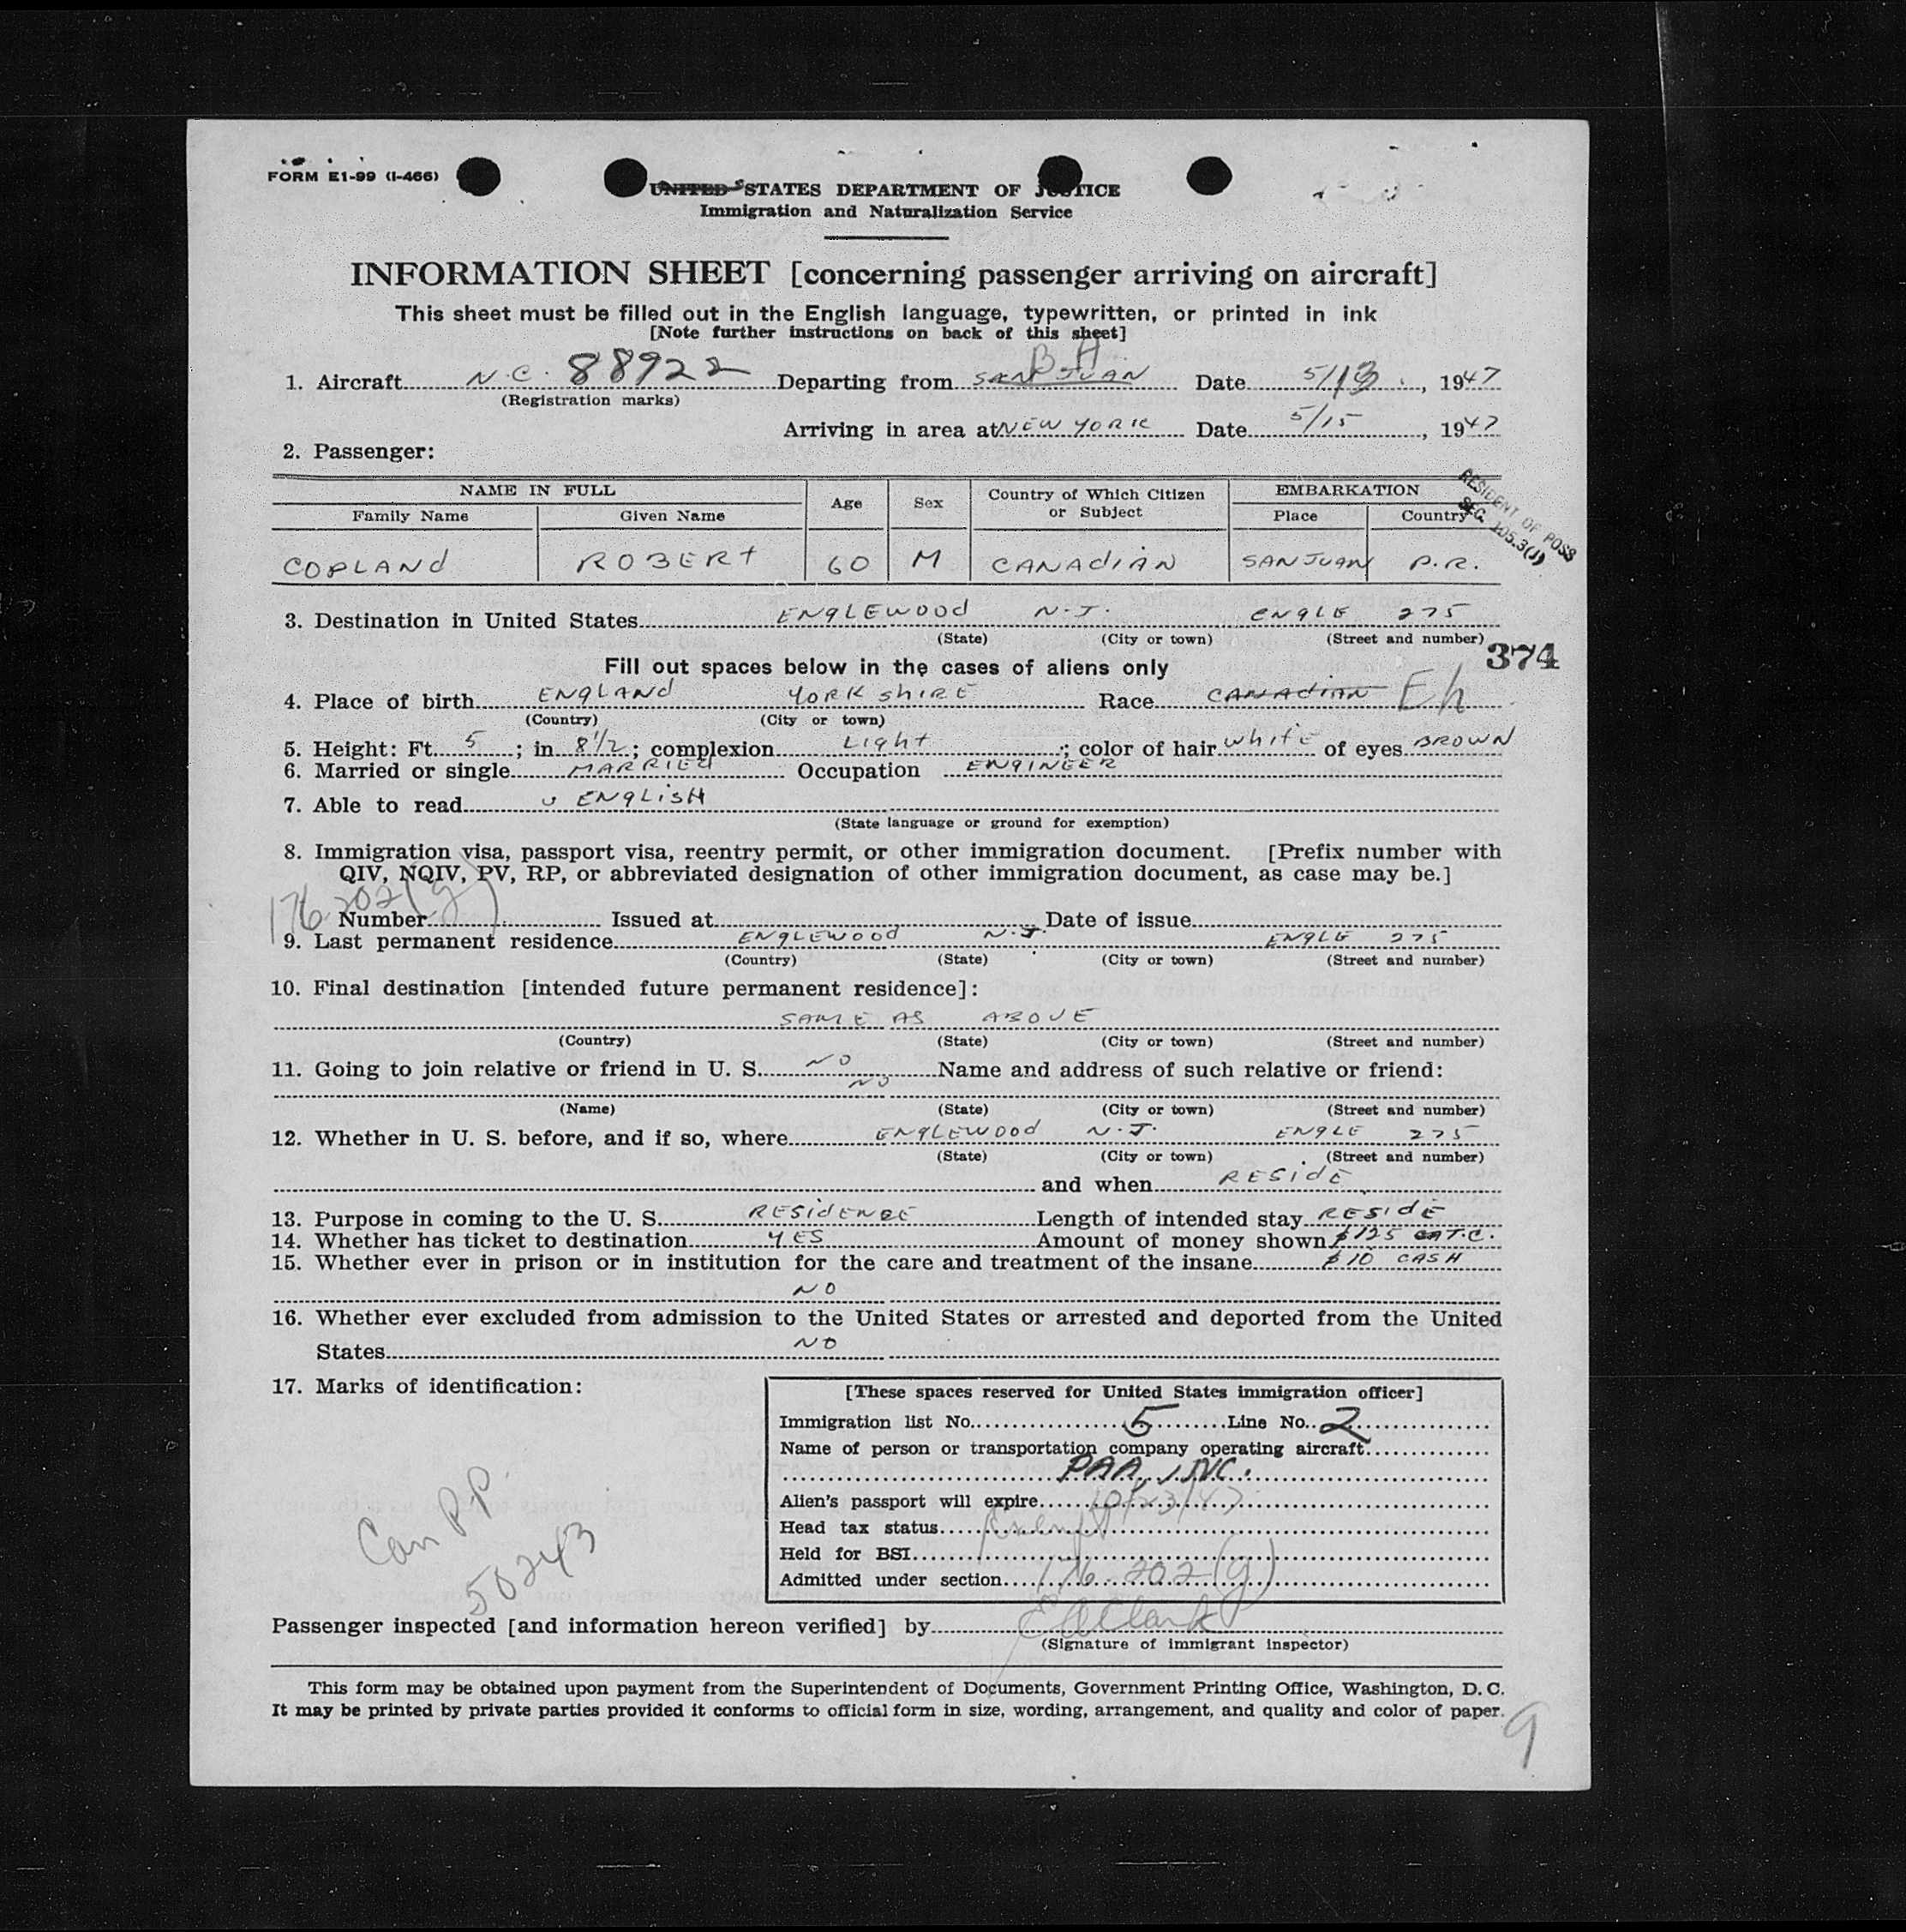 FORM E1-99 (I-466)
UNITED STATES DEPARTMENT OF JUSTICE
Immigration and Naturalization Service
INFORMATION SHEET [concerning passenger arriving on aircraft]
This sheet must be filled out in the English language, typewritten, or printed in ink
[Note further instructions on back of this sheet]
B A.
1. Aircraft N.C. 88922 Departing from SAN JUAN Date 5/13, 1947
(Registration marks)
Arriving in area at NEW YORK Date 5/15, 1947
2. Passenger:
NAME IN FULL Age Sex Country of Which Citizen or Subject EMBARKATION
Family Name Given Name Place Country
RESIDENT OF POSS
SEC. 105.3(J)
COPLAND ROBERT 60 M CANADIAN SAN JUAN P.R.
3. Destination in United States ENGLEWOOD N.J. ENGLE 275
(State) (City or town) (Street and number)
374
Fill out spaces below in the cases of aliens only
4. Place of birth ENGLAND YORKSHIRE Race CANADIAN Eh
(Country) (City or town)
5. Height: Ft. 5; in 8 1/2; complexion Light; color of hair white of eyes BROWN
6. Married or single MARRIED Occupation ENGINEER
7. Able to read ENGLISH
(State language or ground for exemption)
8. Immigration visa, passport visa, reentry permit, or other immigration document. [Prefix number with
QIV, NQIV, PV, RP, or abbreviated designation of other immigration document, as case may be.]
176.202(g)
Number Issued at Date of issue
9. Last permanent residence ENGLEWOOD N.J. ENGLE 275
(Country) (State) (City or town) (Street and number)
10. Final destination [intended future permanent residence]:
SAME AS ABOVE
(Country) (State) (City or town) (Street and number)
11. Going to join relative or friend in U. S. NO Name and address of such relative or friend:
NO
(Name) (State) (City or town) (Street and number)
12. Whether in U. S. before, and if so, where ENGLEWOOD N.J. ENGLE 275
(State) (City or town) (Street and number)
and when RESIDE
13. Purpose in coming to the U. S. RESIDENCE Length of intended stay RESIDE
14. Whether has ticket to destination YES Amount of money shown $125 T.C.
15. Whether ever in prison or in institution for the care and treatment of the insane $10 CASH
NO
16. Whether ever excluded from admission to the United States or arrested and deported from the United
States NO
17. Marks of identification:
Can P.P.
50243
[These spaces reserved for United States immigration officer]
Immigration list No. 5 Line No. 2
Name of person or transportation company operating aircraft
PAA, INC.
Alien's passport will expire 10/23/47
Head tax status Exempt
Held for BSI
Admitted under section 176.202(g)
Passenger inspected [and information hereon verified] by E A Clark
(Signature of immigrant inspector)
This form may be obtained upon payment from the Superintendent of Documents, Government Printing Office, Washington, D. C.
It may be printed by private parties provided it conforms to official form in size, wording, arrangement, and quality and color of paper.
9